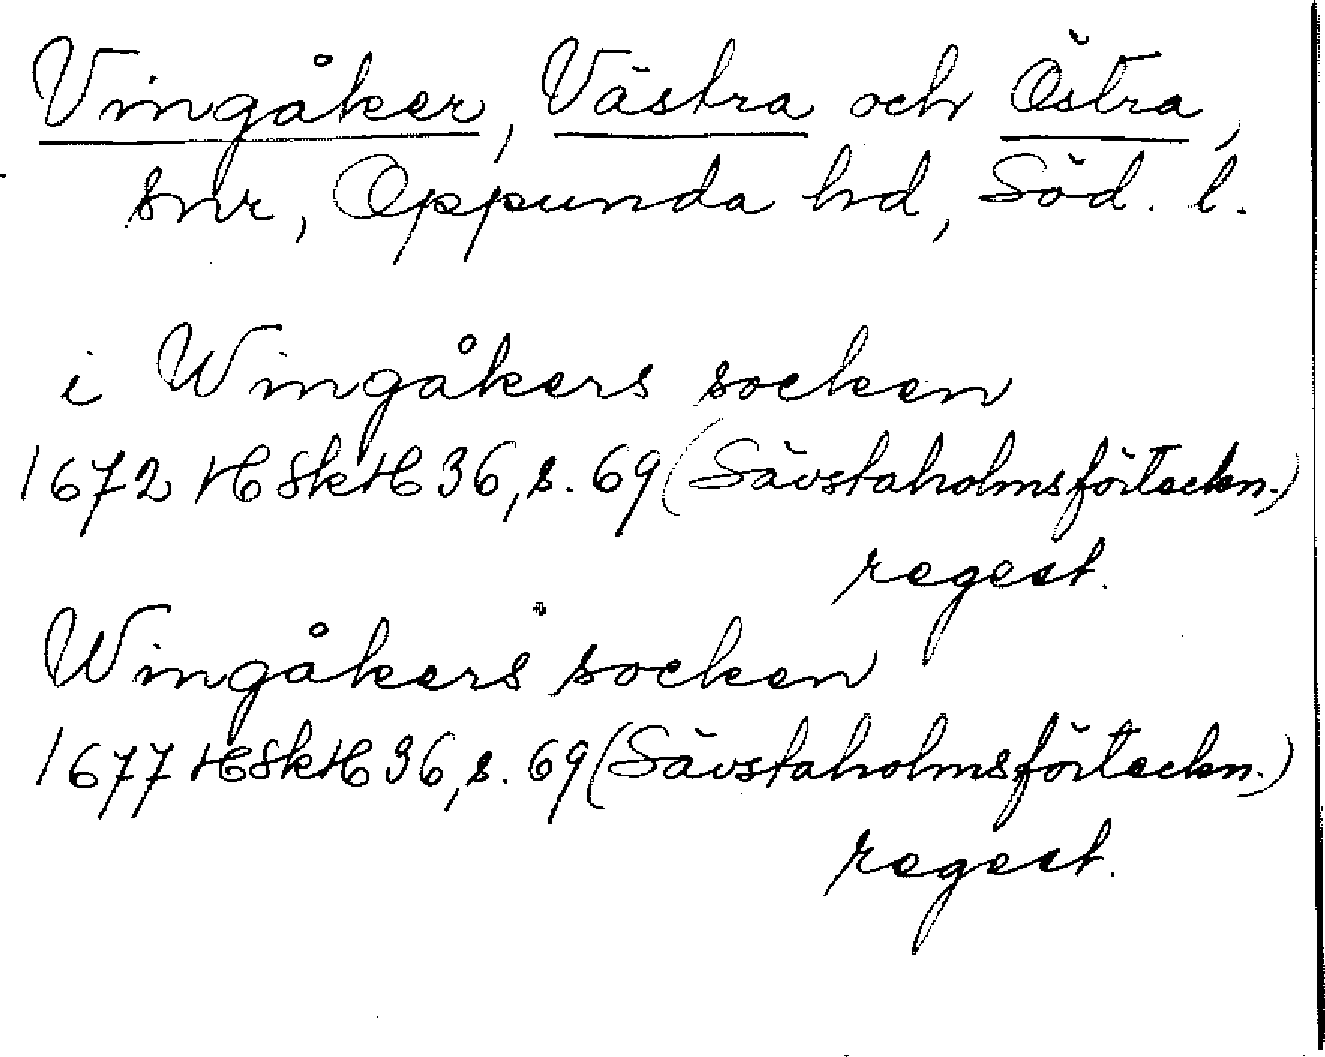 Vingåker, Västra och Östra,
snr, Oppunda hd, Söd. l.
i Wingåkers socken
1672 HSkH 36, s. 69 (Sävstaholmsförteckn.)
regest.
Wingåkers socken
1677 HSkH 36, s. 69 (Sävstaholmsförteckn.)
regest.